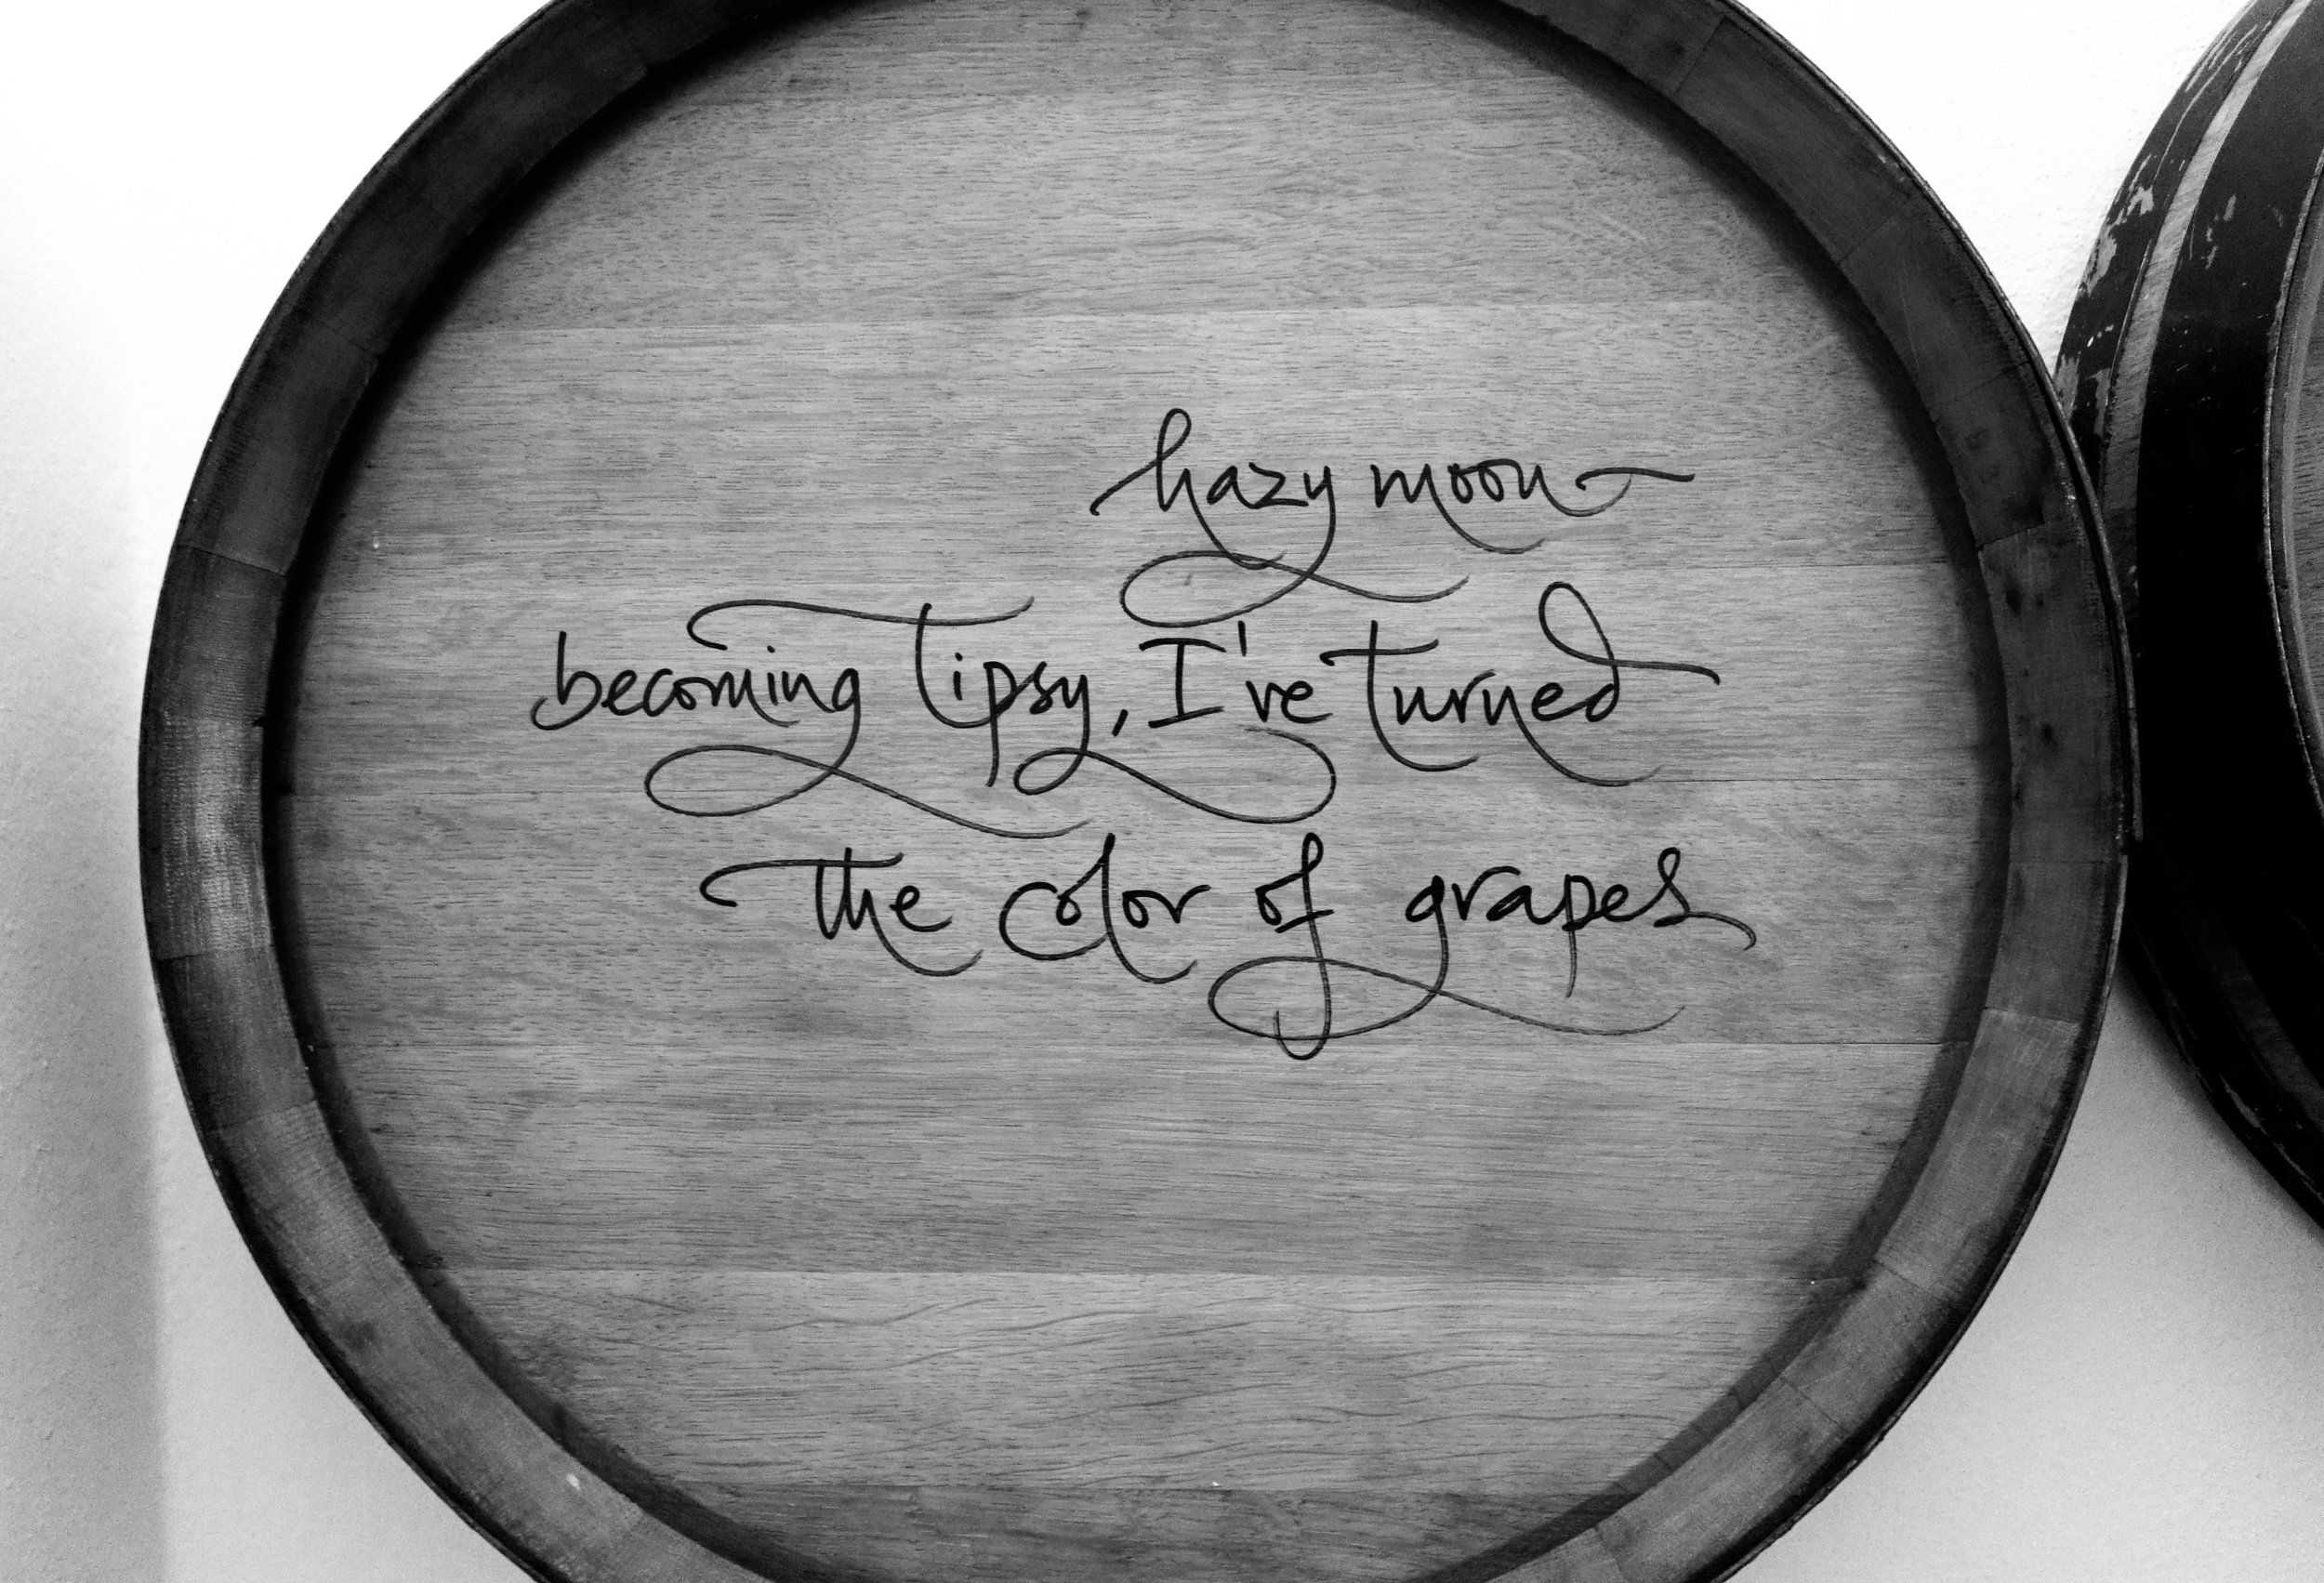 hazy moon
becoming tipsy, I've turned
the color of grapes